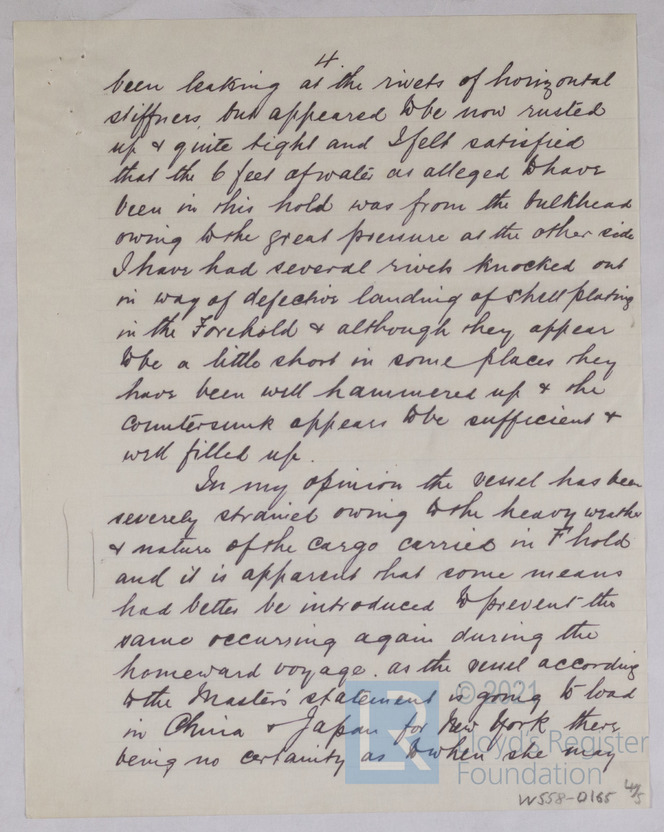 4
been leaking at the rivets of horizontal
stiffners, but appeared to be now rusted
up & quite tight and I felt satisfied
that the 6 feet of water as alleged to have
been in this hold was from the bulkhead
owing to the great pressure at the other side
I have had several rivets knocked out
in way of defective landing of shell plating
in the Forehold & although they appear
to be a little short in some places they
have been well hammered up & the
countersunk appears to be sufficient &
well filled up.
In my opinion the vessel has been
severely strained owing to the heavy weather
& nature of the cargo carried in F hold
and it is apparent that some means
had better be introduced to prevent the
same occurring again during the
homeward voyage. as the vessel according
to the Master's statement is going to load
in China & Japan for New York there
being no certainty as to when she may
© 2021
LR
Lloyd's Register
Foundation
W558-0165 4/5